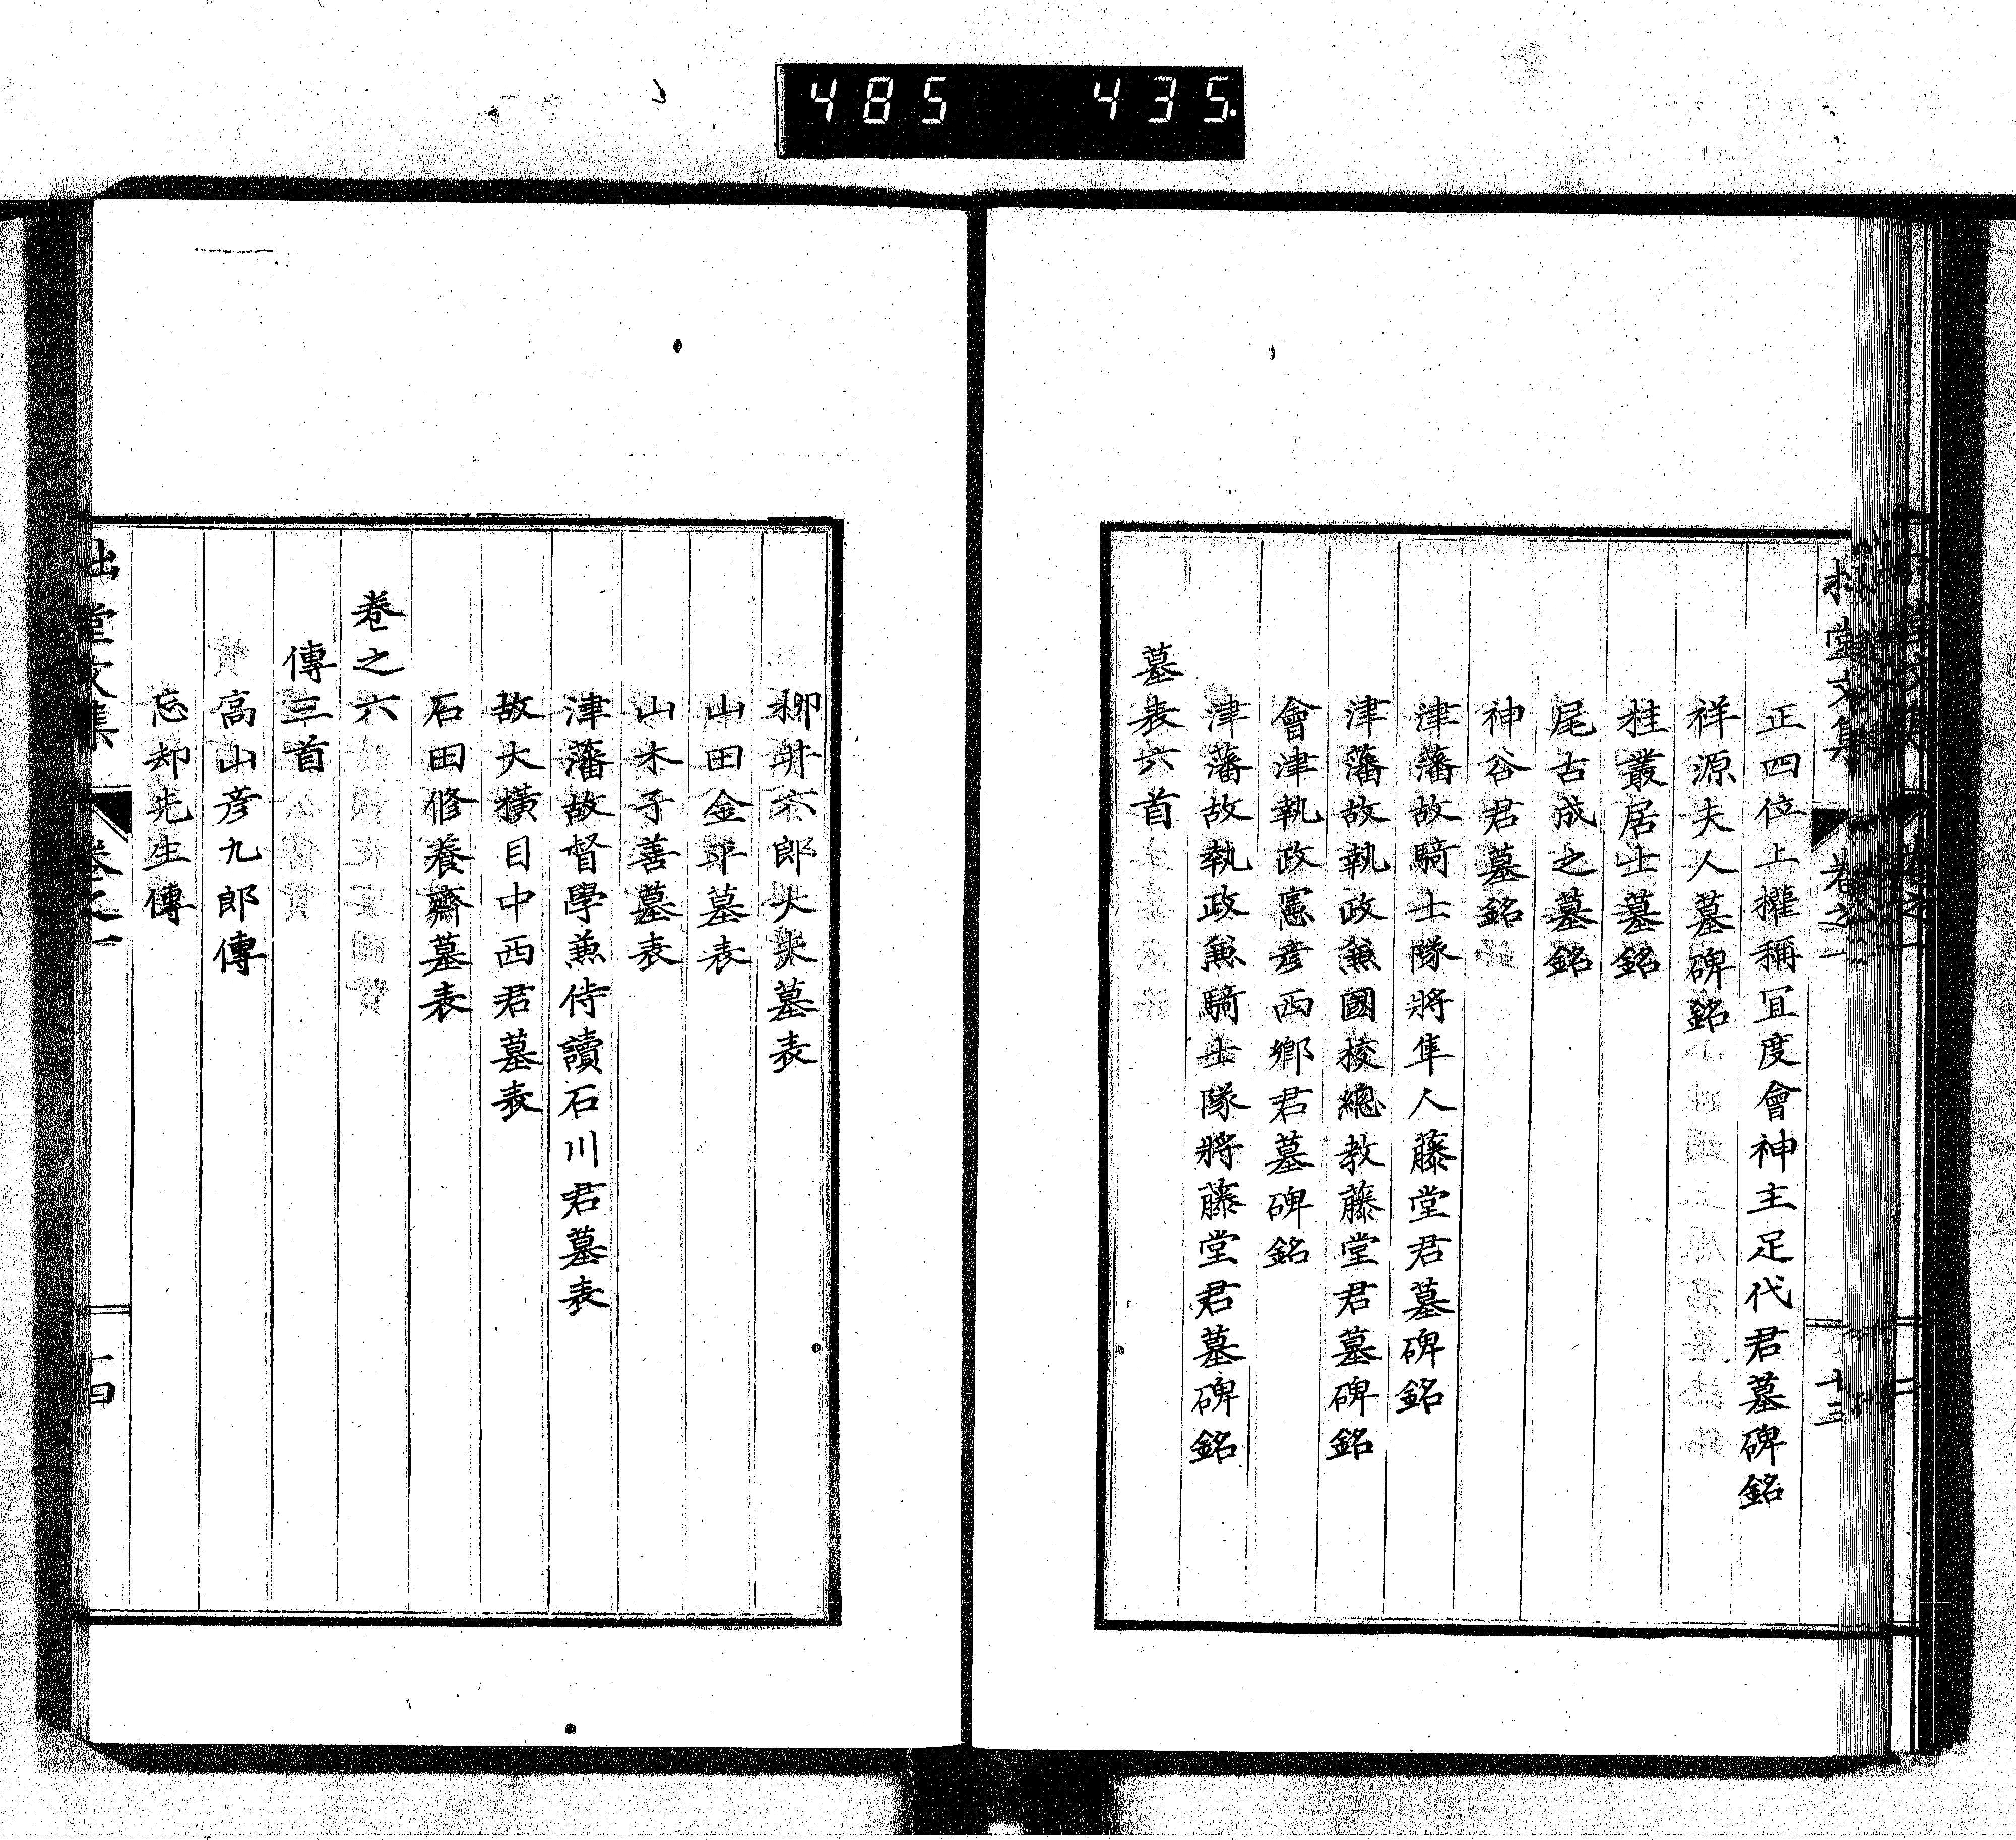 485 435.
拙堂文集 卷之一 十三
正四位上權稱冝度會神主足代君墓碑銘
祥源夫人墓碑銘
桂叢居士墓銘
尾古成之墓銘
神谷君墓銘
津藩故騎士隊將隼人藤堂君墓碑銘
津藩故執政兼國校總教藤堂君墓碑銘
會津執政憲彦西鄉君墓碑銘
津藩故執政兼騎士隊將藤堂君墓碑銘
墓表六首
柳井六郎大夫墓表
山田金平墓表
山木子善墓表
津藩故督學兼侍讀石川君墓表
故大橫目中西君墓表
石田修養齋墓表
卷之六
傳三首
高山彦九郎傳
忘却先生傳
拙堂文集 卷之一 十四